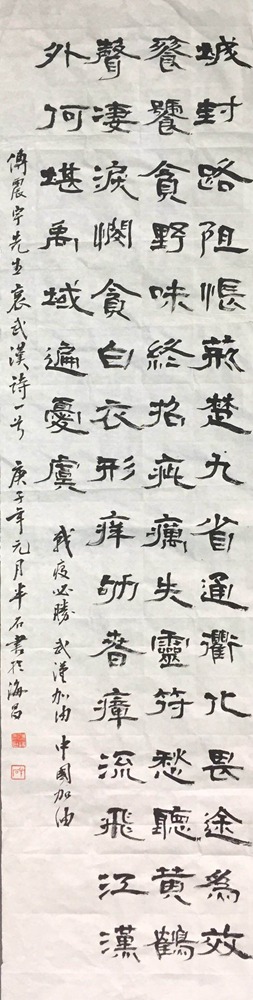 城封路阻悵荊楚九省通衢化畏途為效
饕餮貪野味終招疵癘失靈符愁聽黃鶴
聲淒淚憫貪白衣形瘁瘴流飛江漢
外何堪禹域遍憂虞
戰疫必勝 武漢加油 中國加油
傅震宇先生哀武漢詩一首 庚子年元月半石書於海昌